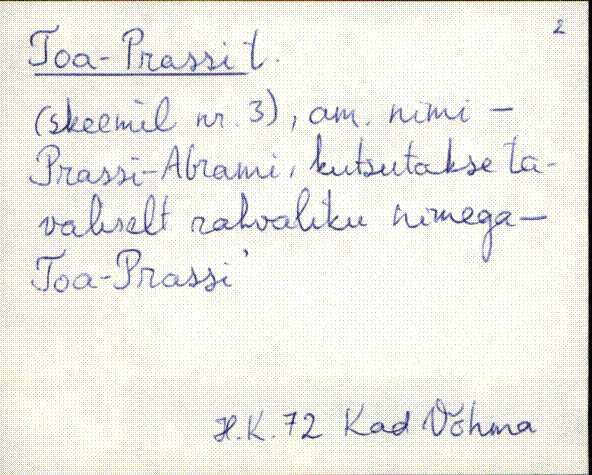 2
Toa-Prassi t.
(skeemil nr. 3), am. nimi –
Prassi-Abrami, kutsutakse ta-
valiselt rahvaliku nimega –
Toa-Prassi'
H.K. 72 Kad Võhma